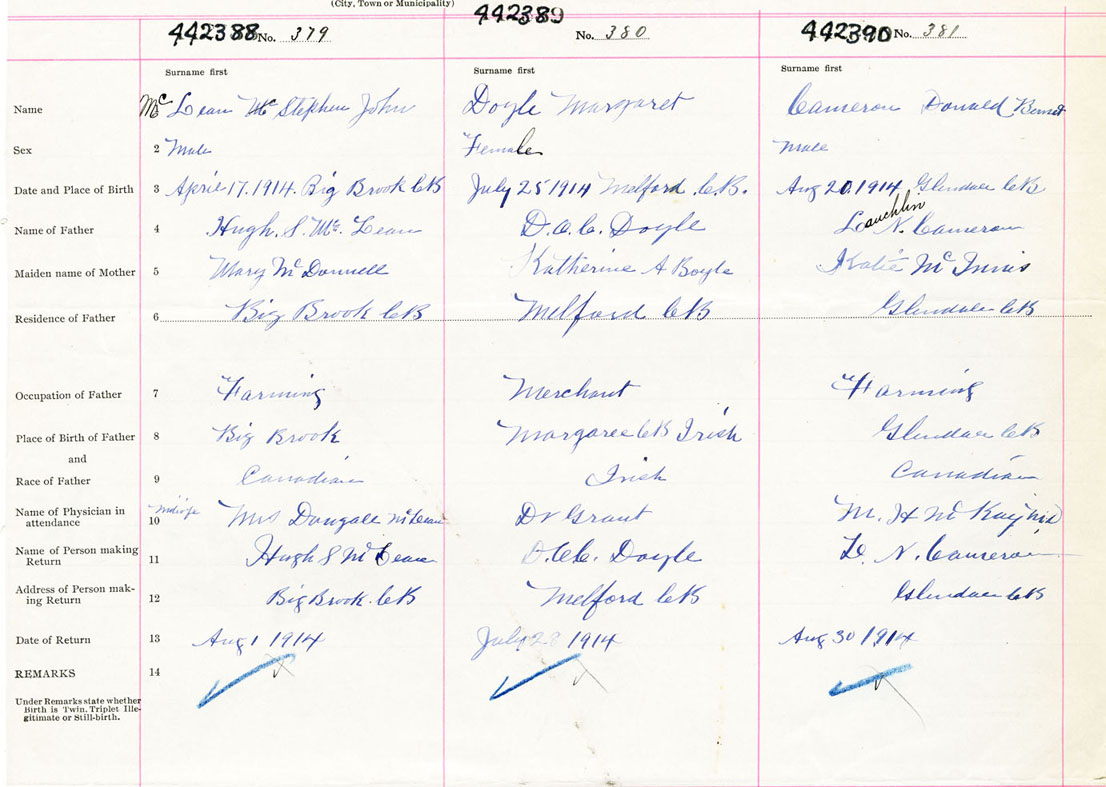 (City, Town or Municipality)
442388 No. 379 442389 No. 380 442390 No. 381
Surname first Surname first Surname first
Name Mc Lean Mc Stephen John Doyle Margaret Cameron Donald
Sex 2 Male Female Male
Date and Place of Birth 3 April 17. 1914. Big Brook CB July 25 1914 Melford C.B. Aug 20. 1914 Glendale CB
Name of Father 4 Hugh. S. Mc. Lean D.O.C. Doyle Lauchlin N. Cameron
Maiden name of Mother 5 Mary McDonnell Katherine A Boyle Katie McInnis
Residence of Father 6 Big Brook CB Melford CB Glendale CB
Occupation of Father 7 Farming Merchant Farming
Place of Birth of Father 8 Big Brook Margaree CB Irish Glendale CB
and
Race of Father 9 Canadian Irish Canadian
Name of Physician in attendance 10 Midwife Mrs Dougald McLean Dr Grant M. H McKay
Name of Person making Return 11 Hugh S McLean Doyle L. N. Cameron
Address of Person making Return 12 Big Brook. CB Melford CB Glendale CB
Date of Return 13 Aug 1 1914 July 28 1914 Aug 30 1914
REMARKS 14
Under Remarks state whether
Birth is Twin. Triplet Ille-
gitimate or Still-birth.